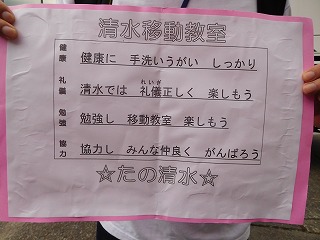 清水移動教室
健康 健康に 手洗いうがい しっかり
礼儀 清水では 礼儀正しく 楽しもう
れいぎ
勉強 勉強し 移動教室 楽しもう
協力 協力し みんな仲良く がんばろう
☆たの清水☆